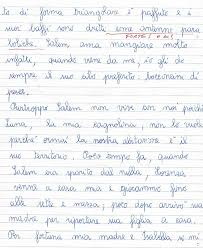 to di forma triangolare è paffuto e i
suoi baffi sono dritti come antenne para
boliche. Salem ama mangiare molto
infatti, quando viene da me, io gli do
sempre il suo cibo preferito: bocconcini di
pesce.
Purtroppo Salem non vive con noi perché
Luna, la mia cagnolina, non lo vuole
perché ormai la nostra abitazione è il
suo territorio. Poco tempo fa, quando
Salem era ospite dal nulla, Lorenza
venne a casa mia e giocammo fino
alle sette e mezza; poco dopo arrivò sua
madre per riportare sua figlia a casa.
Per fortuna mia madre e Isabella si mi